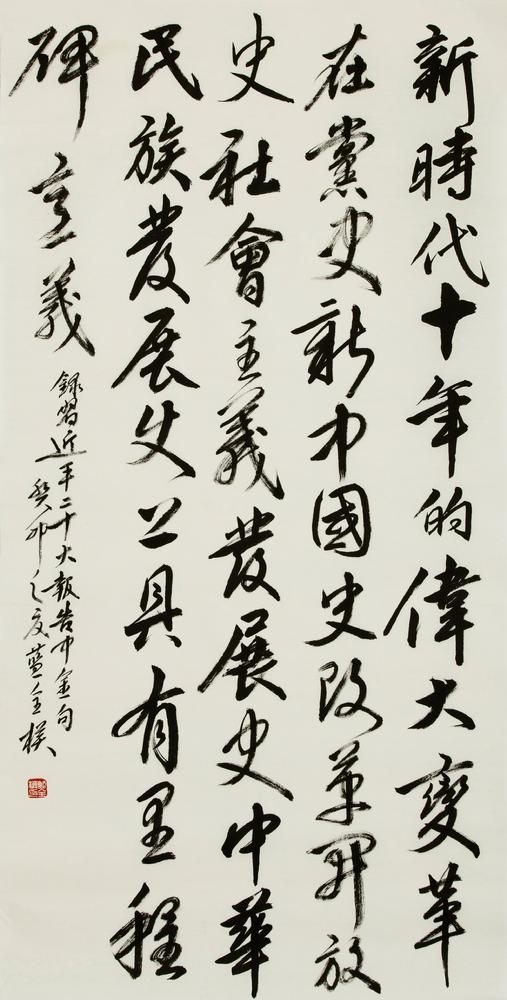 新時代十年的偉大變革
在黨史新中國史改革開放
史社會主義發展史中華
民族發展史上具有里程
碑意義
錄習近平二十大報告中金句
癸卯之夏藍全樸